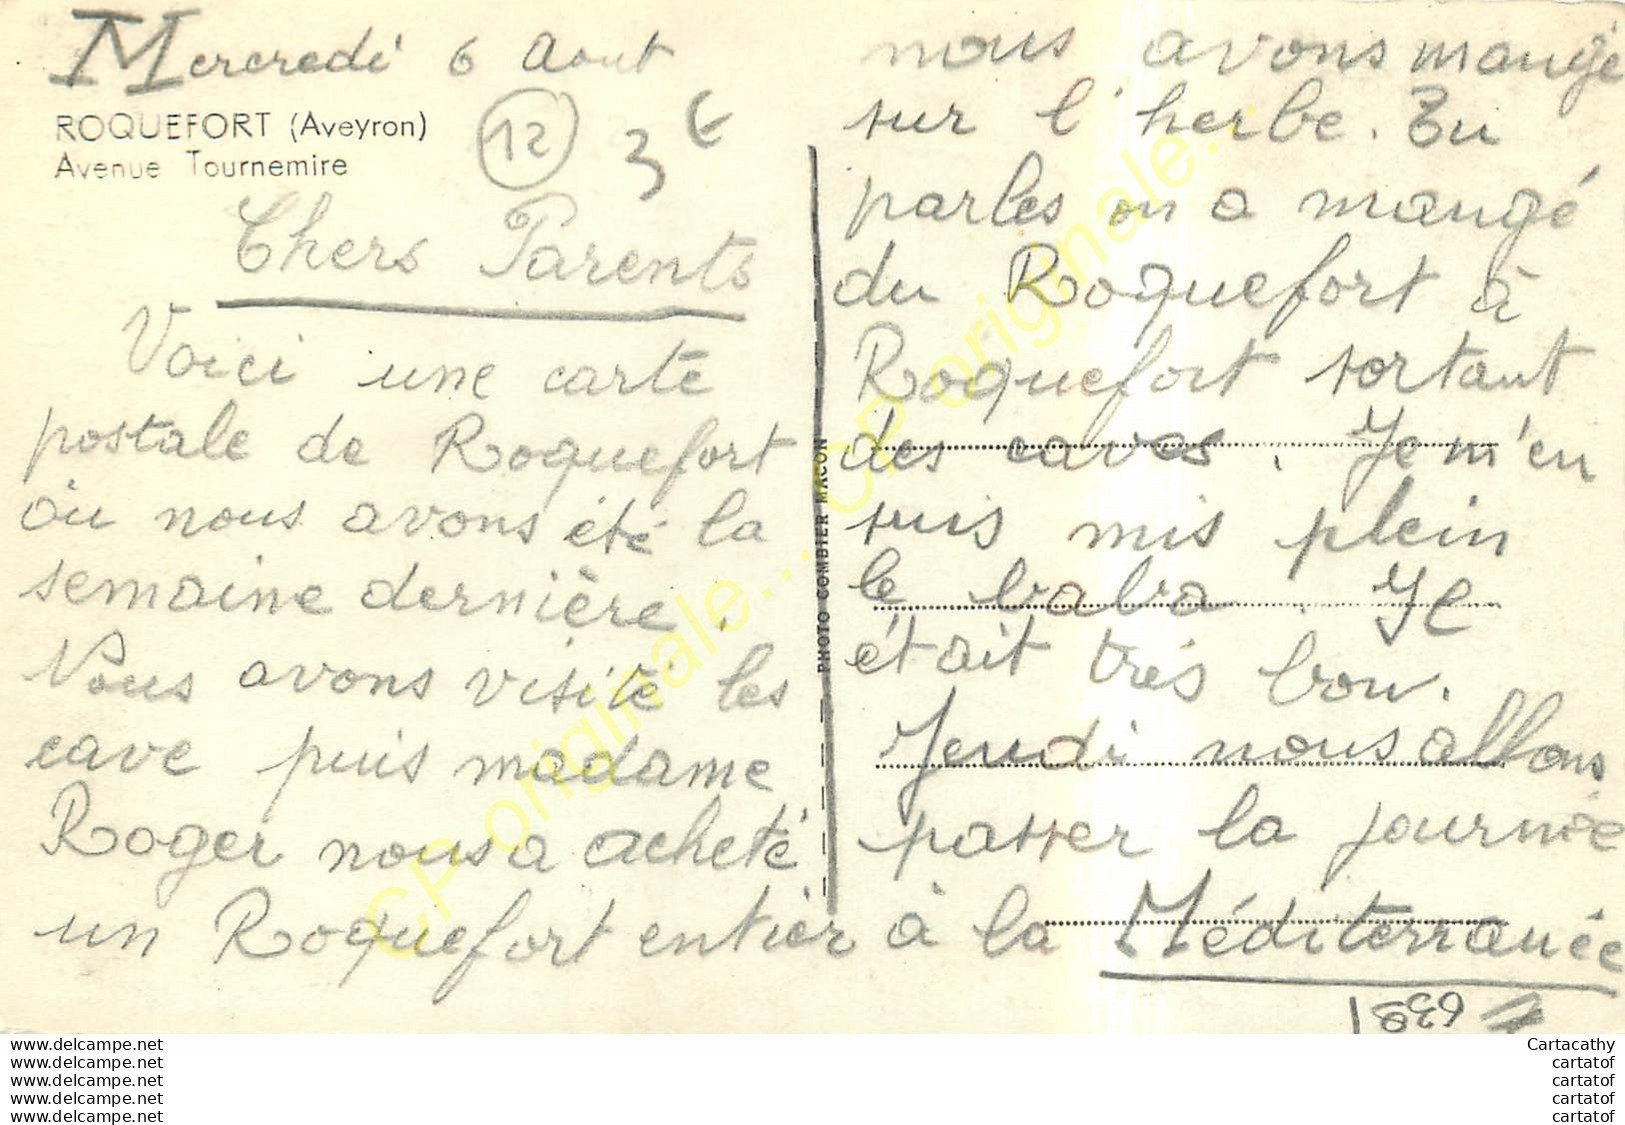 Mercredi 6 Aout
ROQUEFORT (Aveyron)
Avenue Tournemire
12
3 €
Chers Parents
Voici une carte
postale de Roquefort
où nous avons été la
semaine dernière.
Nous avons visité les
cave puis madame
Roger nous a acheté
un Roquefort entier
PHOTO COMBIER MACON
nous avons mangé
sur l'herbe. Tu
parles on a mangé
du Roquefort à
Roquefort sortant
des caves. Je m'en
suis mis plein
le baba. Il
était très bon.
Jeudi nous allons
passer la journée
à la Méditerranée
CP originale... CP originale...
www.delcampe.net
www.delcampe.net
www.delcampe.net
www.delcampe.net
www.delcampe.net
Cartacathy
cartatof
cartatof
cartatof
cartatof